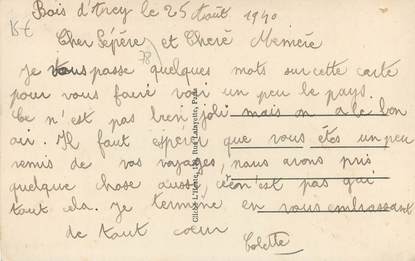 Bois d'Arcy le 25 Août 1940
Cher Pépère et Cherè Memère
78
Je vous passe quelques mots sur cette carte
pour vous faire voir un peu le pays.
Ce n'est pas bien joli mais on a le bon
air. Il faut esperer que vous êtes un peu
remis de vos voyages, nous avons pris
quelque chose aussi, ce n'est pas gai
tout cela. Je termine en vous embrassant
de tout coeur
Colette
Rue Lafayette, Paris